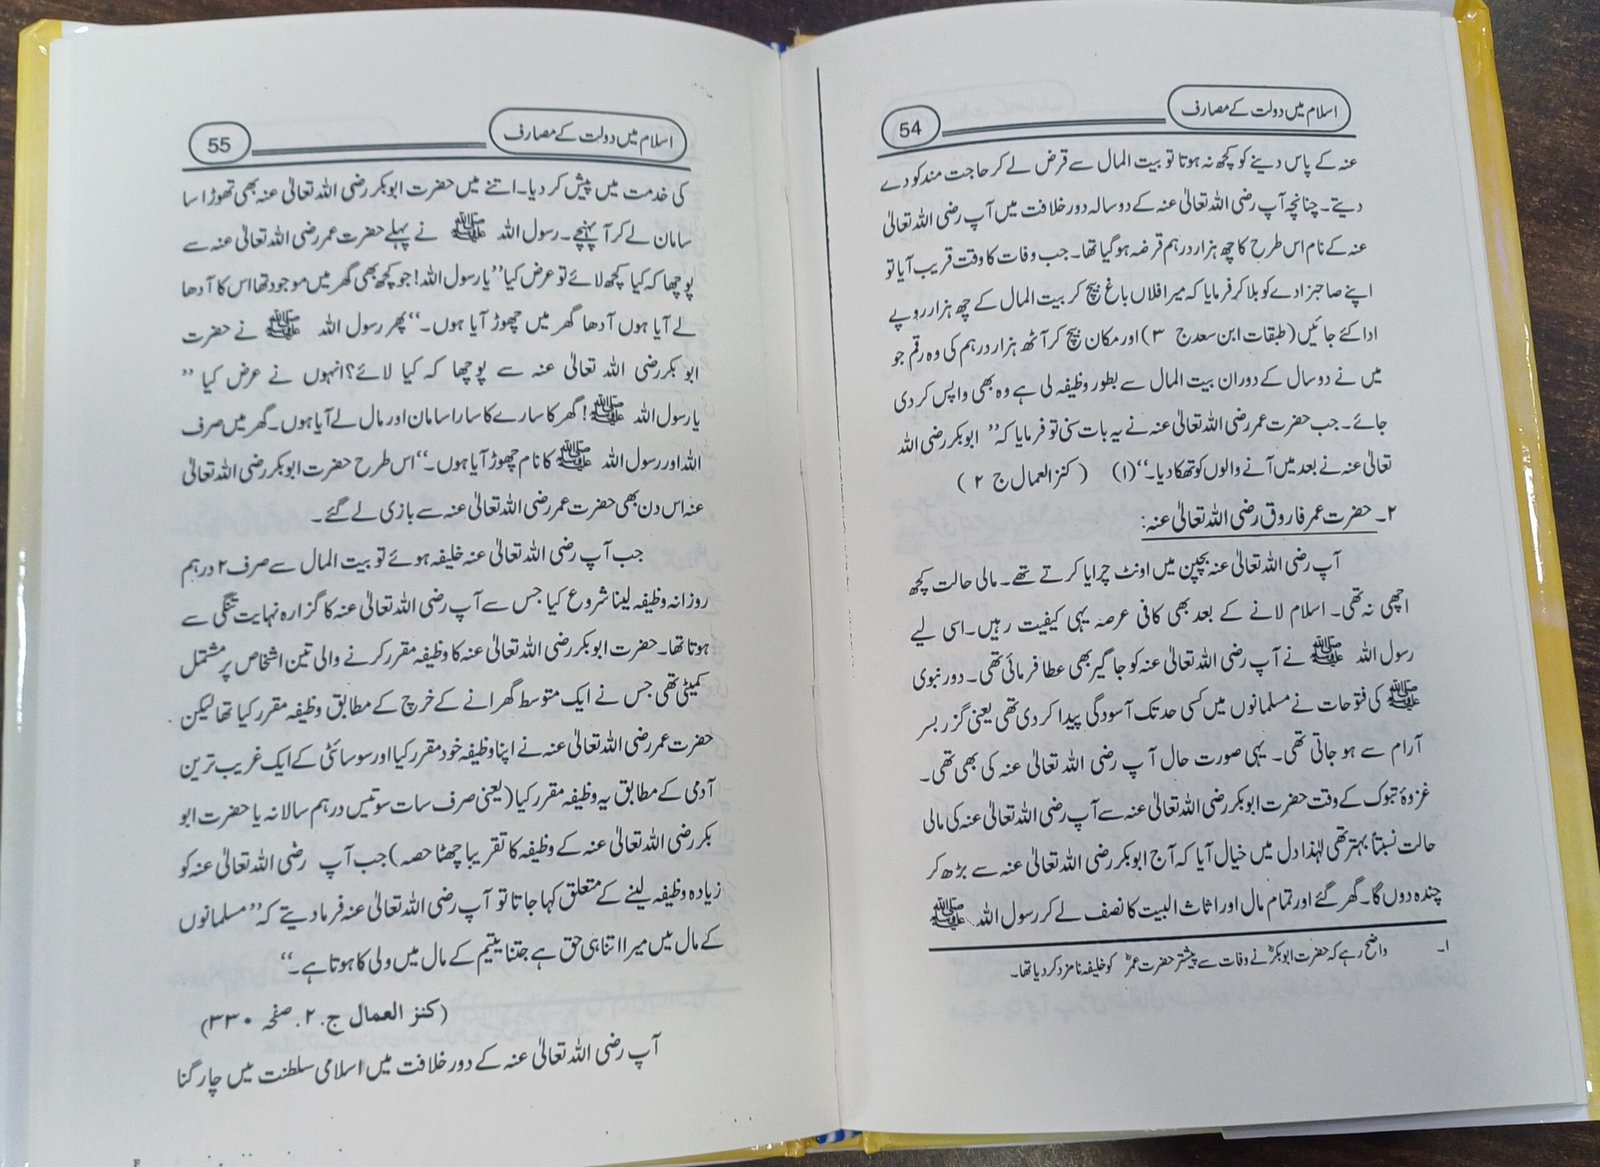 اسلام میں دولت کے مصارف
54
عنہ کے پاس دینے کو کچھ نہ ہوتا تو بیت المال سے قرض لے کر حاجت مند کو دے
دیتے۔ چنانچہ آپ رضی اللہ تعالیٰ عنہ کے دو سالہ دور خلافت میں آپ رضی اللہ تعالیٰ
عنہ کے نام اس طرح کا چھ ہزار درہم قرضہ ہو گیا تھا۔ جب وفات کا وقت قریب آیا تو
اپنے صاحبزادے کو بلا کر فرمایا کہ میرا فلاں باغ بیچ کر بیت المال کے چھ ہزار روپے
ادا کئے جائیں (طبقات ابن سعد ج ۳) اور مکان بیچ کر آٹھ ہزار درہم کی وہ رقم جو
میں نے دو سال کے دوران بیت المال سے بطور وظیفہ لی ہے وہ بھی واپس کر دی
جائے۔ جب حضرت عمر رضی اللہ تعالیٰ عنہ نے یہ بات سنی تو فرمایا کہ ’’ ابوبکر رضی اللہ
تعالیٰ عنہ نے بعد میں آنے والوں کو تھکا دیا۔‘‘ (۱) ( کنز العمال ج ۲ )
۲۔ حضرت عمر فاروق رضی اللہ تعالیٰ عنہ:
آپ رضی اللہ تعالیٰ عنہ بچپن میں اونٹ چرایا کرتے تھے۔ مالی حالت کچھ
اچھی نہ تھی۔ اسلام لانے کے بعد بھی کافی عرصہ یہی کیفیت رہیں۔ اسی لیے
رسول اللہ ﷺ نے آپ رضی اللہ تعالیٰ عنہ کو جاگیر بھی عطا فرمائی تھی۔ دور نبوی
ﷺ کی فتوحات نے مسلمانوں میں کسی حد تک آسودگی پیدا کر دی تھی یعنی گزر بسر
آرام سے ہو جاتی تھی۔ یہی صورت حال آپ رضی اللہ تعالیٰ عنہ کی بھی تھی۔
غزوۂ تبوک کے وقت حضرت ابوبکر رضی اللہ تعالیٰ عنہ سے آپ رضی اللہ تعالیٰ عنہ کی مالی
حالت نسبتاً بہتر تھی لہٰذا دل میں خیال آیا کہ آج ابوبکر رضی اللہ تعالیٰ عنہ سے بڑھ کر
چندہ دوں گا۔ گھر گئے اور تمام مال اور اثاث البیت کا نصف لے کر رسول اللہ ﷺ
۱۔ واضح رہے کہ حضرت ابوبکرؓ نے وفات سے پیشتر حضرت عمرؓ کو خلیفہ نامزد کر دیا تھا۔
اسلام میں دولت کے مصارف
55
کی خدمت میں پیش کر دیا۔ اتنے میں حضرت ابوبکر رضی اللہ تعالیٰ عنہ بھی تھوڑا سا
سامان لے کر آ پہنچے۔ رسول اللہ ﷺ نے پہلے حضرت عمر رضی اللہ تعالیٰ عنہ سے
پوچھا کہ کیا کچھ لائے تو عرض کیا ’’یا رسول اللہ! جو کچھ بھی گھر میں موجود تھا اس کا آدھا
لے آیا ہوں آدھا گھر میں چھوڑ آیا ہوں۔‘‘ پھر رسول اللہ ﷺ نے حضرت
ابو بکر رضی اللہ تعالیٰ عنہ سے پوچھا کہ کیا لائے؟ انہوں نے عرض کیا ’’
یا رسول اللہ ﷺ! گھر کا سارے کا سارا سامان اور مال لے آیا ہوں۔ گھر میں صرف
اللہ اور رسول اللہ ﷺ کا نام چھوڑ آیا ہوں۔‘‘ اس طرح حضرت ابوبکر رضی اللہ تعالیٰ
عنہ اس دن بھی حضرت عمر رضی اللہ تعالیٰ عنہ سے بازی لے گئے۔
جب آپ رضی اللہ تعالیٰ عنہ خلیفہ ہوئے تو بیت المال سے صرف ۲ درہم
روزانہ وظیفہ لینا شروع کیا جس سے آپ رضی اللہ تعالیٰ عنہ کا گزارہ نہایت تنگی سے
ہوتا تھا۔ حضرت ابوبکر رضی اللہ تعالیٰ عنہ کا وظیفہ مقرر کرنے والی تین اشخاص پر مشتمل
کمیٹی تھی جس نے ایک متوسط گھرانے کے خرچ کے مطابق وظیفہ مقرر کیا تھا لیکن
حضرت عمر رضی اللہ تعالیٰ عنہ نے اپنا وظیفہ خود مقرر کیا اور سوسائٹی کے ایک غریب ترین
آدمی کے مطابق یہ وظیفہ مقرر کیا (یعنی صرف سات سو تیس درہم سالانہ یا حضرت ابو
بکر رضی اللہ تعالیٰ عنہ کے وظیفہ کا تقریبا چھٹا حصہ) جب آپ رضی اللہ تعالیٰ عنہ کو
زیادہ وظیفہ لینے کے متعلق کہا جاتا تو آپ رضی اللہ تعالیٰ عنہ فرما دیتے کہ ’’مسلمانوں
کے مال میں میرا اتنا ہی حق ہے جتنا یتیم کے مال میں ولی کا ہوتا ہے۔‘‘
(کنز العمال ج.۲. صفحہ ۳۳۰)
آپ رضی اللہ تعالیٰ عنہ کے دور خلافت میں اسلامی سلطنت میں چار گنا